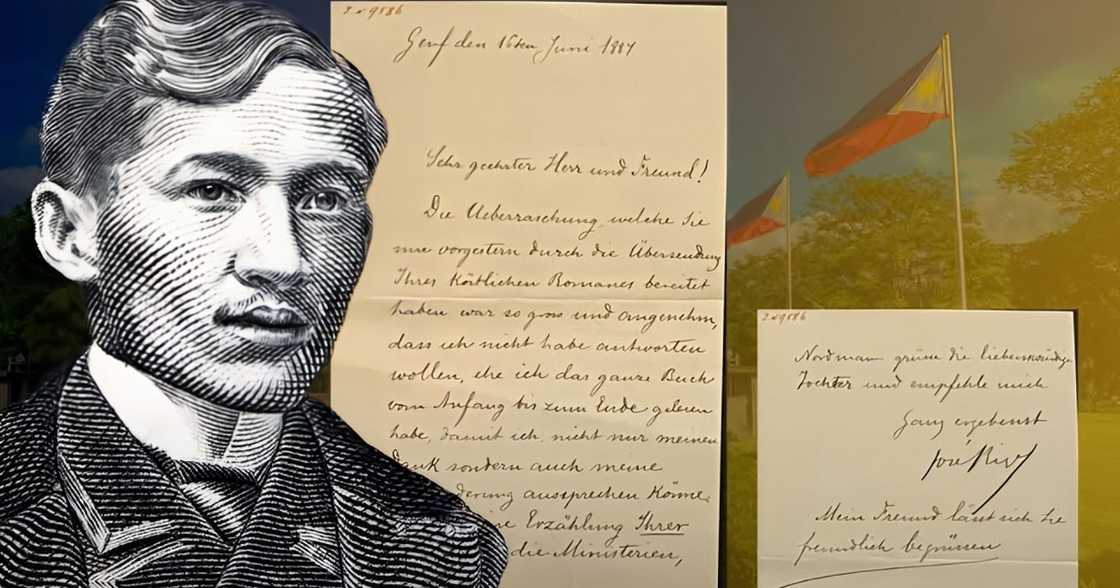 Genf den 16ten Juni 1887
Sehr geehrter Herr und Freund!
Die Ueberraschung, welche Sie
mir vorgestern durch die Übersendung
Ihres köstlichen Romanes bereitet
haben war so gross und angenehm,
dass ich nicht habe antworten
wollen, ehe ich das ganze Buch
vom Anfang bis zum Ende gelesen
habe, damit ich nicht nur meinen
Dank sondern auch meine
derung aussprechen könne.
Erzählung Ihrer
die Ministerien,
grüsse die liebenswürdige
Tochter und empfehle mich
Ganz ergebenst
José Rizal
Mein Freund lässt sich Sie
freundlich begrüssen